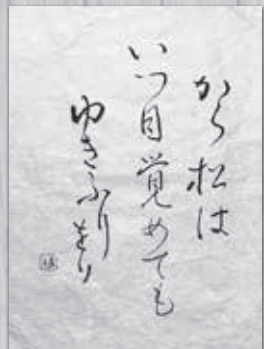 から松は
いつ目覚めても
ゆきふりをり